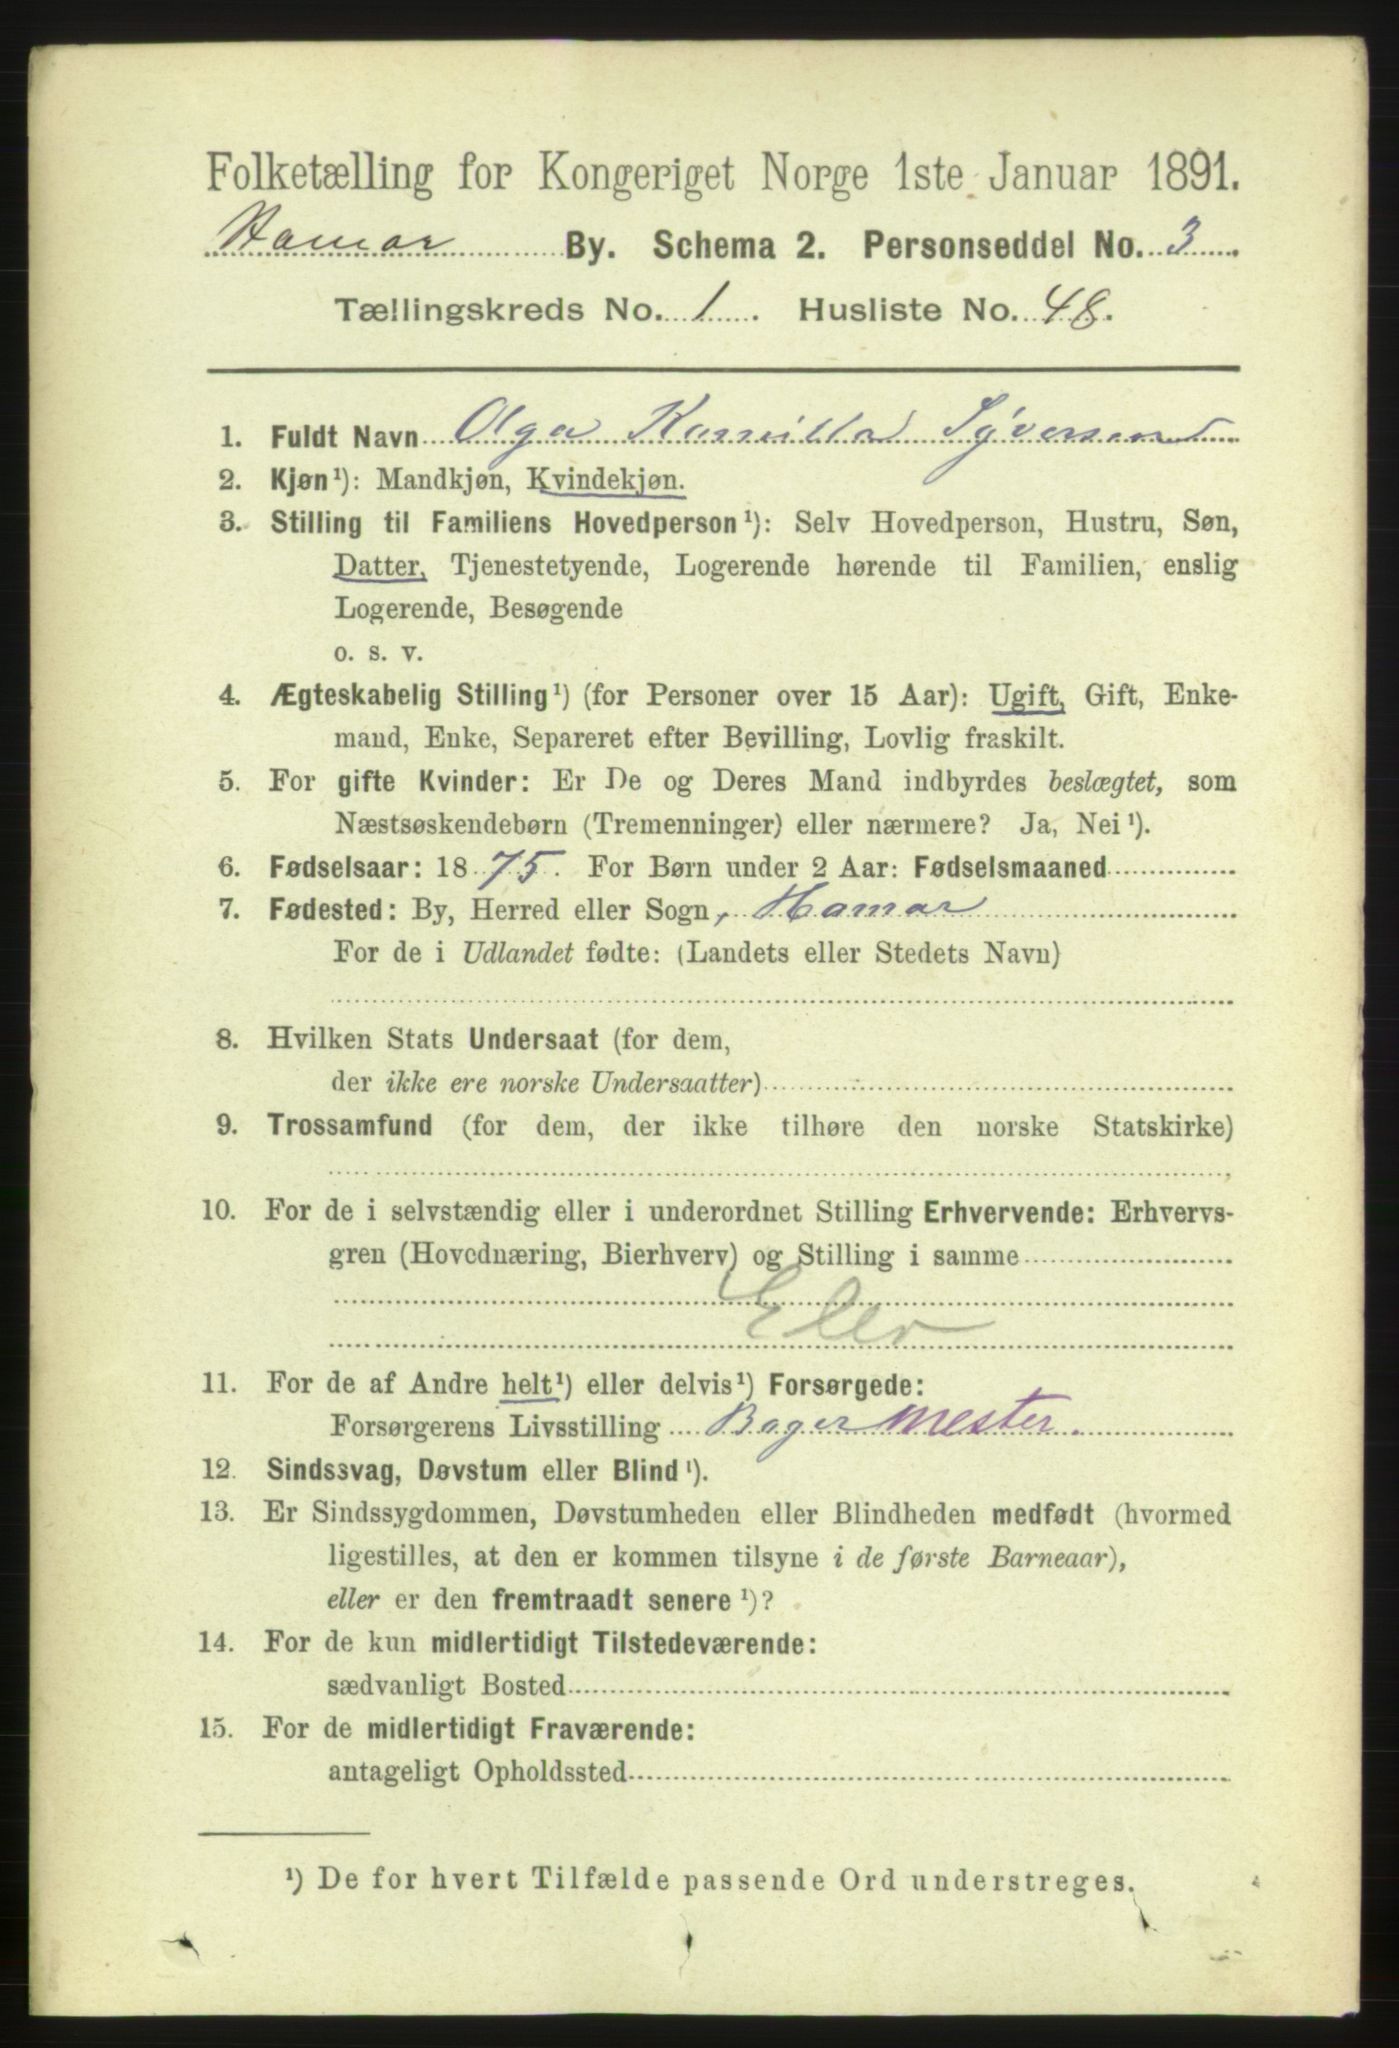 Folketælling for Kongeriget Norge 1ste Januar 1891.
Hamar By. Schema 2. Personseddel No. 3
Tællingskreds No. 1. Husliste No. 48.
1. Fuldt Navn Olga Kamilla Syversen
2. Kjøn¹): Mandkjøn, Kvindekjøn.
3. Stilling til Familiens Hovedperson¹): Selv Hovedperson, Hustru, Søn,
Datter, Tjenestetyende, Logerende hørende til Familien, enslig
Logerende, Besøgende
o. s. v.
4. Ægteskabelig Stilling¹) (for Personer over 15 Aar): Ugift, Gift, Enke-
mand, Enke, Separeret efter Bevilling, Lovlig fraskilt.
5. For gifte Kvinder: Er De og Deres Mand indbyrdes beslægtet, som
Næstsøskendebørn (Tremenninger) eller nærmere? Ja, Nei¹).
6. Fødselsaar: 1875. For Børn under 2 Aar: Fødselsmaaned
7. Fødested: By, Herred eller Sogn, Hamar
For de i Udlandet fødte: (Landets eller Stedets Navn)
8. Hvilken Stats Undersaat (for dem,
der ikke ere norske Undersaatter)
9. Trossamfund (for dem, der ikke tilhøre den norske Statskirke)
10. For de i selvstændig eller i underordnet Stilling Erhvervende: Erhvervs-
gren (Hovednæring, Bierhverv) og Stilling i samme
Elev
11. For de af Andre helt¹) eller delvis¹) Forsørgede:
Forsørgerens Livsstilling Bager mester.
12. Sindssvag, Døvstum eller Blind¹).
13. Er Sindssygdommen, Døvstumheden eller Blindheden medfødt (hvormed
ligestilles, at den er kommen tilsyne i de første Barneaar),
eller er den fremtraadt senere¹)?
14. For de kun midlertidigt Tilstedeværende:
sædvanligt Bosted
15. For de midlertidigt Fraværende:
antageligt Opholdssted
¹) De for hvert Tilfælde passende Ord understreges.